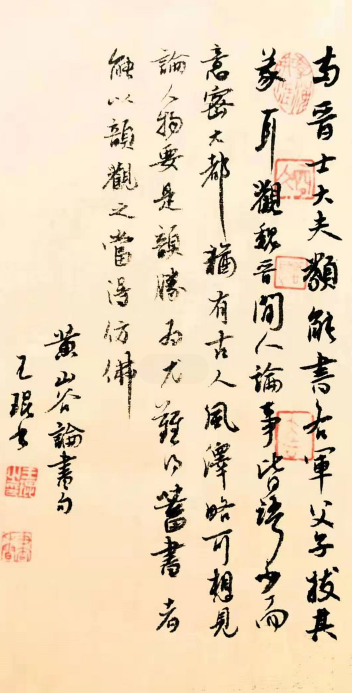 両晉士大夫類能書右軍父子拔其
萃耳觀魏晉間人論事皆語少而
意密大都猶有古人風澤略可想見
論人物要是韻勝為尤難得蓄書者
能以韻觀之當得仿佛
黄山谷論書句
王琨書